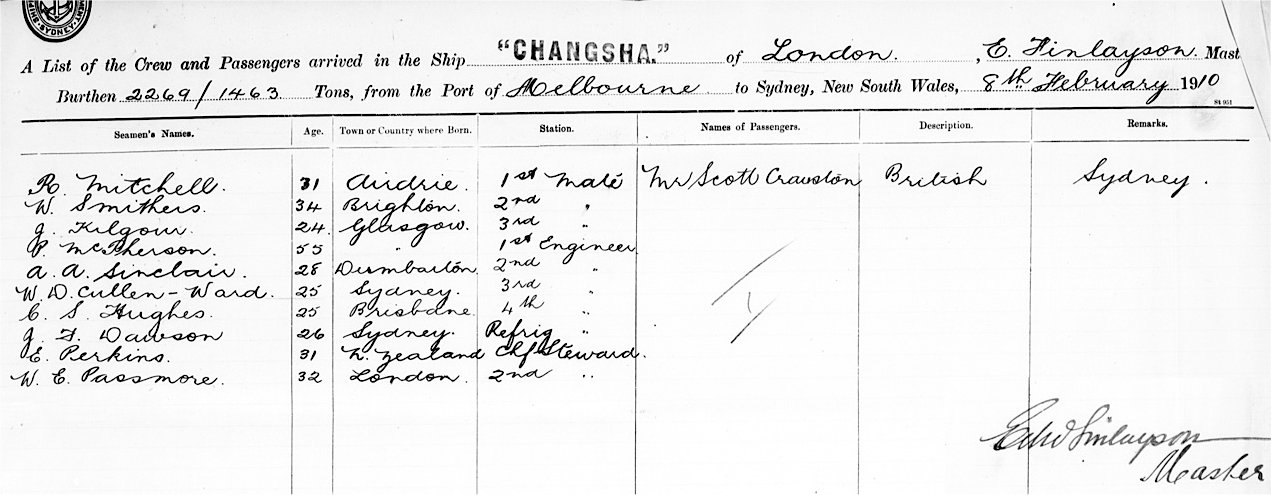 SYDNEY
A List of the Crew and Passengers arrived in the Ship "CHANGSHA." of London. , E. Finlayson. Mast
Burthen 2269/1463 Tons, from the Port of Melbourne to Sydney, New South Wales, 8th February 1910
St 951
Seamen's Names. Age. Town or Country where Born. Station. Names of Passengers. Description. Remarks.
R. Mitchell. 31 Airdrie. 1st Mate Mr Scott Cranston British Sydney.
W. Smithers. 34 Brighton. 2nd "
J. Kilgour. 24. Glasgow. 3rd "
P. McPherson. 55 " 1st Engineer
A. A. Sinclair. 28 Dumbarton. 2nd "
W. D. Cullen-Ward. 25 Sydney. 3rd "
C. S. Hughes. 25 Brisbane. 4th "
J. F. Dawson 26 Sydney. Refrig "
E. Perkins. 31 N. Zealand Chf Steward.
W. E. Passmore. 32 London. 2nd "
Edwd Finlayson
Master